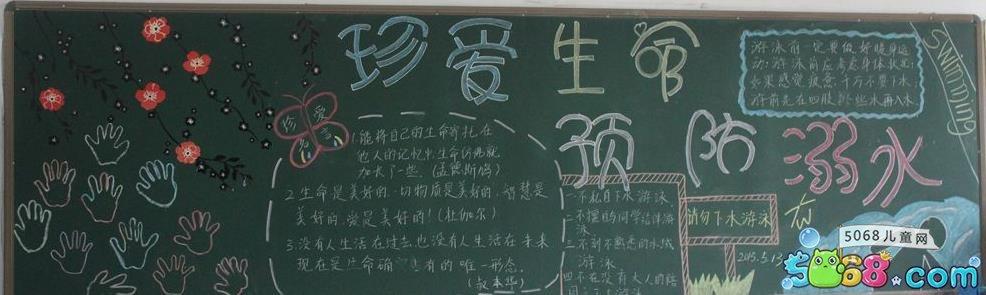 珍爱生命
预防溺水
珍爱
1.能将自己的生命寄托在
他人的记忆中,生命仿佛就
加长了一些。(孟德斯鸠)
2.生命是美好的,一切物质是美好的,智慧是
美好的,爱是美好的!(杜伽尔)
3.没有人生活在过去,也没有人生活在未来
现在是生命确
有的唯一形态。
(叔本华)
一不私自下水游泳
二不擅自与同学结伴游
泳
三不到不熟悉的水域
游泳
四不在没有大人的陪
请勿下水游泳
2015.5.13
游泳前一定要做好暖身运
动:游泳前应考虑身体状况
如果感觉疲惫,千万不要下水
游前先在四肢撩些水再入水
SWIMMING
5068儿童网
5068.com